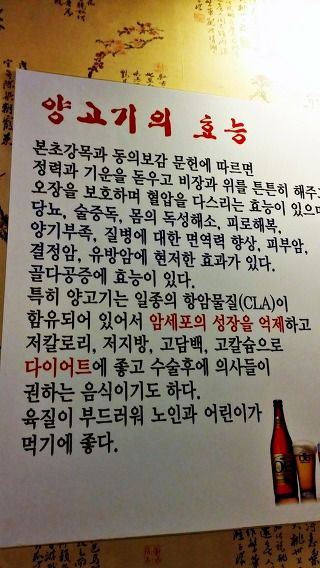 양고기의 효능
본초강목과 동의보감 문헌에 따르면
정력과 기운을 돋우고 비장과 위를 튼튼히 해주고
오장을 보호하며 혈압을 다스리는 효능이 있으며
당뇨, 술중독, 몸의 독성해소, 피로해복,
양기부족, 질병에 대한 면역력 향상, 피부암,
결정암, 유방암에 현저한 효과가 있다.
골다공증에 효능이 있다.
특히 양고기는 일종의 항암물질(CLA)이
함유되어 있어서 암세포의 성장을 억제하고
저칼로리, 저지방, 고담백, 고칼슘으로
다이어트에 좋고 수술후에 의사들이
권하는 음식이기도 하다.
육질이 부드러워 노인과 어린이가
먹기에 좋다.